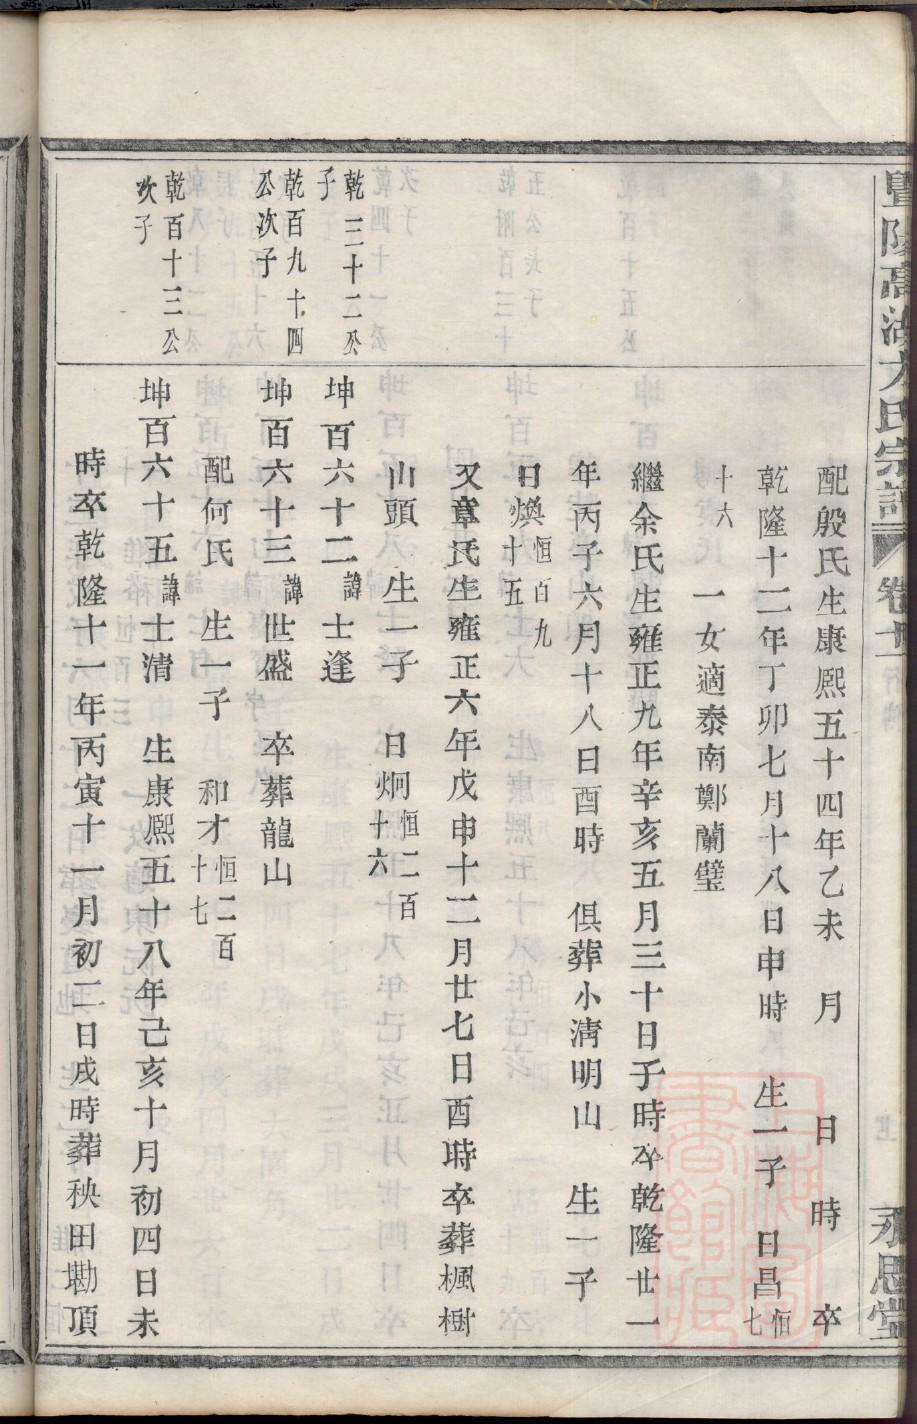 暨陽高湖方氏宗譜 卷十二 永思堂
配殷氏生康熙五十四年乙未 月 日 時 卒
乾隆十二年丁卯七月十八日申時 生一子 日昌恒七
十六 一女適泰南鄭蘭璧
繼余氏生雍正九年辛亥五月三十日子時卒乾隆廿一
年丙子六月十八日酉時 俱葬小淸明山 生一子
日煥恒百九十五
又章氏生雍正六年戊申十二月廿七日酉時卒葬楓樹
山頭 生一子 日炯恒二百十六
乾三十二公子
坤百六十二諱士逢
乾百九十四公次子
坤百六十三諱世盛 卒葬龍山
配何氏 生一子 和才恒二百十七
乾百十三公次子
坤百六十五諱士清 生康熙五十八年己亥十月初四日未
時卒乾隆十一年丙寅十一月初二日戌時葬秧田墈頂